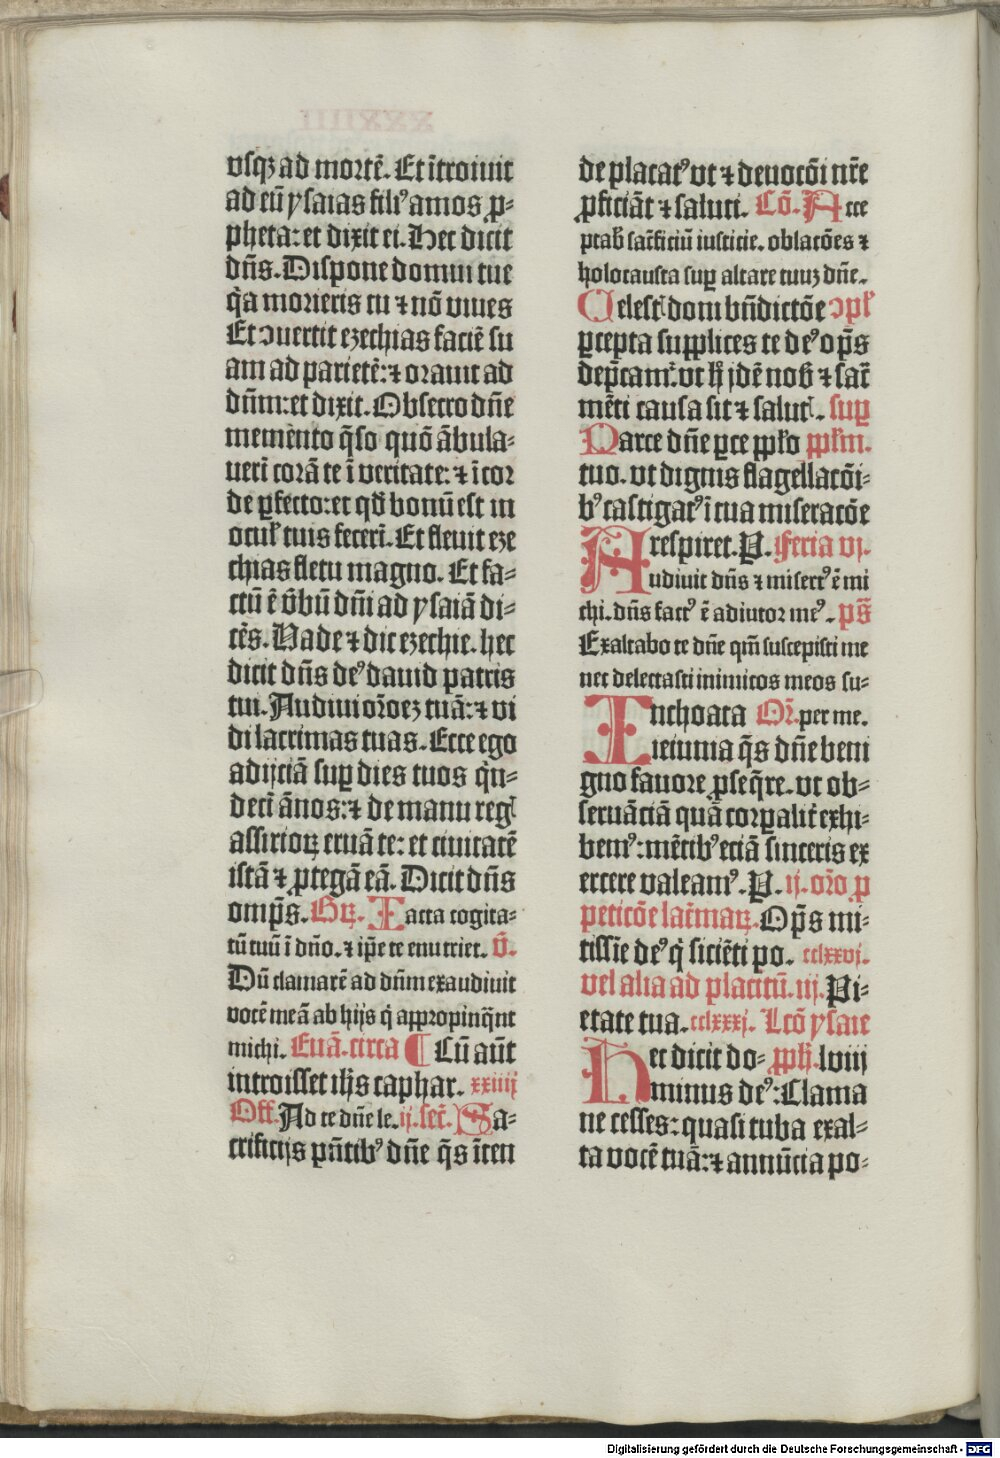 vsqꝫ ad mortē. Et ītroiuit
ad eū ysaias filiꝰ amos ꝓ-
pheta: et dixit ei. Hec dicit
dn̄s. Dispone domui tue
q̓a morieris tu ⁊ nō viues
Et ↄuertit ezechias faciē su
am ad parietē: ⁊ orauit ad
dn̄m: et dixit. Obsecro dn̄e
memento q̄so quō ābula-
uerī corā te ī veritate: ⁊ ī cor
de ꝑfecto: et qd̄ bonū est in
ocul̉ tuis fecerī. Et fleuit eze
chias fletu magno. Et fa-
ctū ē v̄bū dn̄i ad ysaiā di-
cēs. Vade ⁊ dic ezechie. hec
dicit dn̄s deꝰ dauid patris
tui. Audiui or̄oeꝫ tuā: ⁊ vi
di lacrimas tuas. Ecce ego
adijciā suꝑ dies tuos q̓n-
deci ānos: ⁊ de manu regꝭ
assirioꝝ eruā te: et ciuitatē
istā ⁊ ꝓtegā eā. Dicit dn̄s
omp̄s. Gꝝ. Iacta cogita-
tū tuū ī dn̄o. ⁊ ip̄e te enutriet. v̄.
Dū clamarē ad dn̄m exaudiuit
vocē meā ab hijs q̓ appropinq̄nt
michi. Euā. circa ¶ Cū aūt
introisset ih̄s caphar. xxiiij
Off. Ad te dn̄e le. ij. sec̄. Sa-
crificijs pn̄tibꝰ dn̄e q̄s īten
de placatꝰ vt ⁊ deuocōi nr̄e
ꝓficiāt ⁊ saluti. Cō. Acce
ptab̄ sac̄ficiū iusticie. oblacōes ⁊
holocausta suꝑ altare tuuꝫ dn̄e.
Celestꝭ doni bn̄dictōe ↄpl̄
ꝑcepta supplices te deꝰ op̄s
dep̄cam̄. vt h̄ idē nob̄ ⁊ sac̄
mēti causa sit ⁊ salutꝭ. suꝑ
Parce dn̄e ꝑce pp̄lo pp̄lm.
tuo. vt dignis flagellacōi-
bꝰ castigatꝰ ī tua miseracōe
respiret. P. Feria vj.
Audiuit dn̄s ⁊ misertꝰ ē mi
chi. dn̄s factꝰ ē adiutor meꝰ. ps̄
Exaltabo te dn̄e qm̄ suscepisti me
nec delectasti inimicos meos su-
Inchoata Or̄. per me.
ieiunia q̄s dn̄e beni
gno fauore ꝓseq̄re. vt ob-
seruāciā quā corꝑalit̄ exhi-
bemꝰ: mētibꝰ eciā sinceris ex
ercere valeamꝰ. P. ij. or̄o ꝓ
peticōe lac̄maꝝ. Op̄s mi-
tissīe deꝰ q̓ siciēti po. cclxxvj.
vel alia ad placitū. iij. Pi-
etate tua. cclxxxj. Lcō ysaie
Hec dicit do- ꝓph̄. lviij
minus deꝰ: Clama
ne cesses: quasi tuba exal-
ta vocē tuā: ⁊ annūcia po-
Digitalisierung gefördert durch die Deutsche Forschungsgemeinschaft - DFG